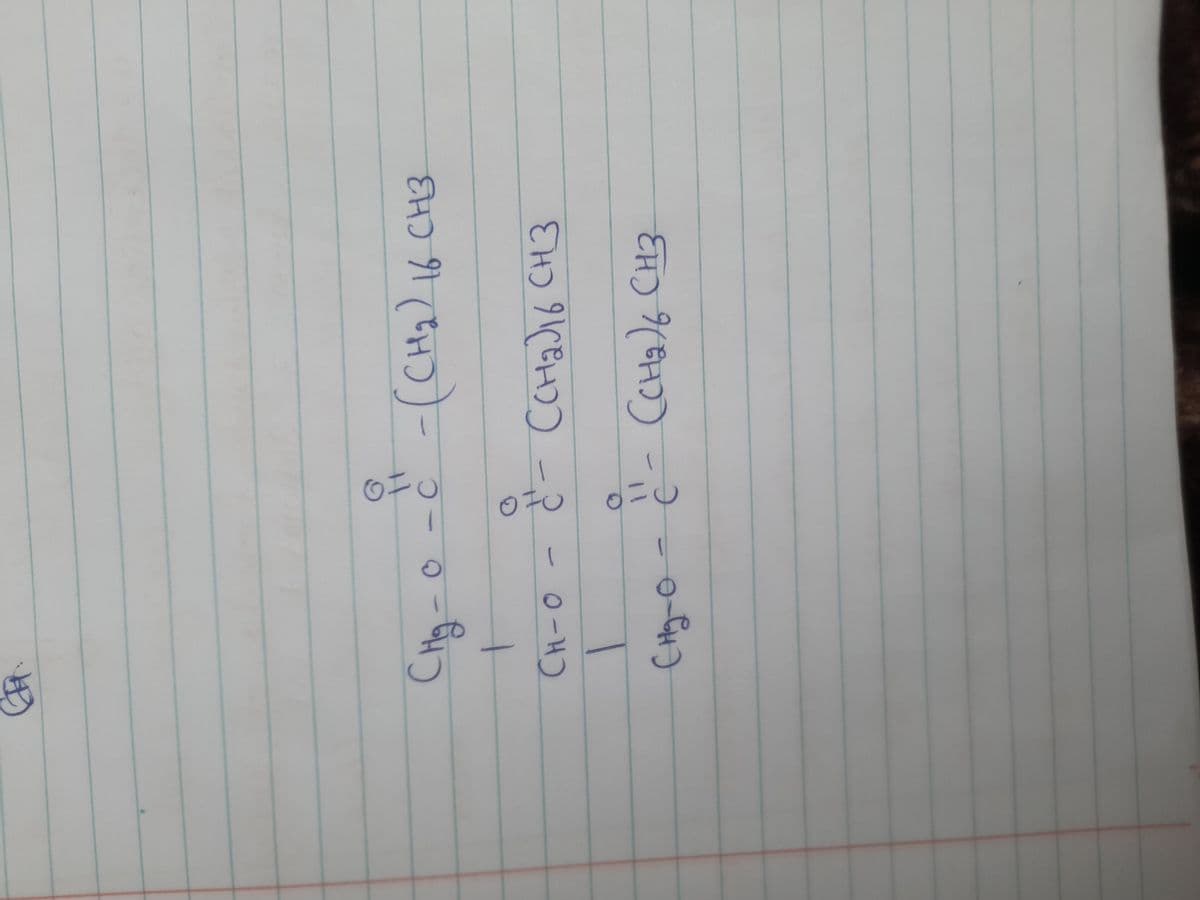 O
||
CH2-O-C-(CH2)16 CH3
|
O
||
CH-O-C-(CH2)16 CH3
|
O
||
CH2-O-C-(CH2)6 CH3